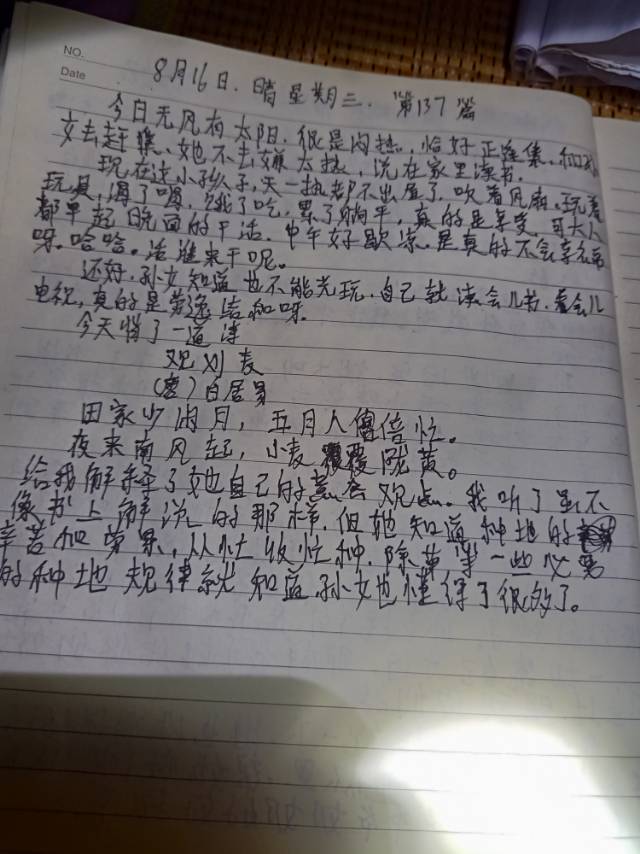 NO.
Date
8月16日.晴 星期三. 第137篇
今日无风有太阳.很是闷热.恰好正逢集.和
女去赶集、她不去嫌太热,说在家里读书.
现在这小孙子,天一热都不出屋了.吹着风扇.玩着
玩具,渴了喝.饿了吃.累了躺平,真的是享受.可大人
都早起晚回的干活.中午好歇凉.是真的不会享
呀.哈哈.活谁来干呢。
还好.孙女知道也不能光玩.自己就读会儿书.看会儿
电视,真的是劳逸结和呀.
今天悄了一道诗
观刈麦
(唐)白居易
田家少闲月,五月人倍忙。
夜来南风起,小麦覆陇黄。
给我解释了她自己的观点.我听了虽不
像书上解说的那样.但她知道种地的
辛苦和劳累,从忙收忙种.除草等一些必
的种地规律就知道.孙女也懂得了很多了。